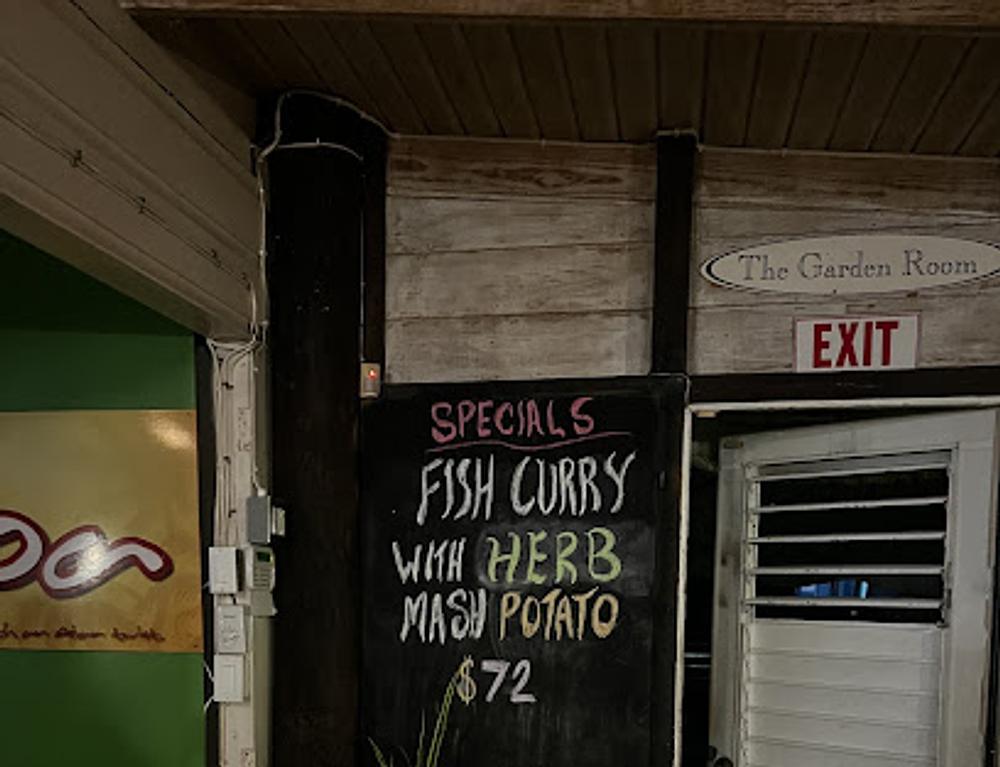 The Garden Room
EXIT
SPECIALS
FISH CURRY
WITH HERB
MASH POTATO
$72